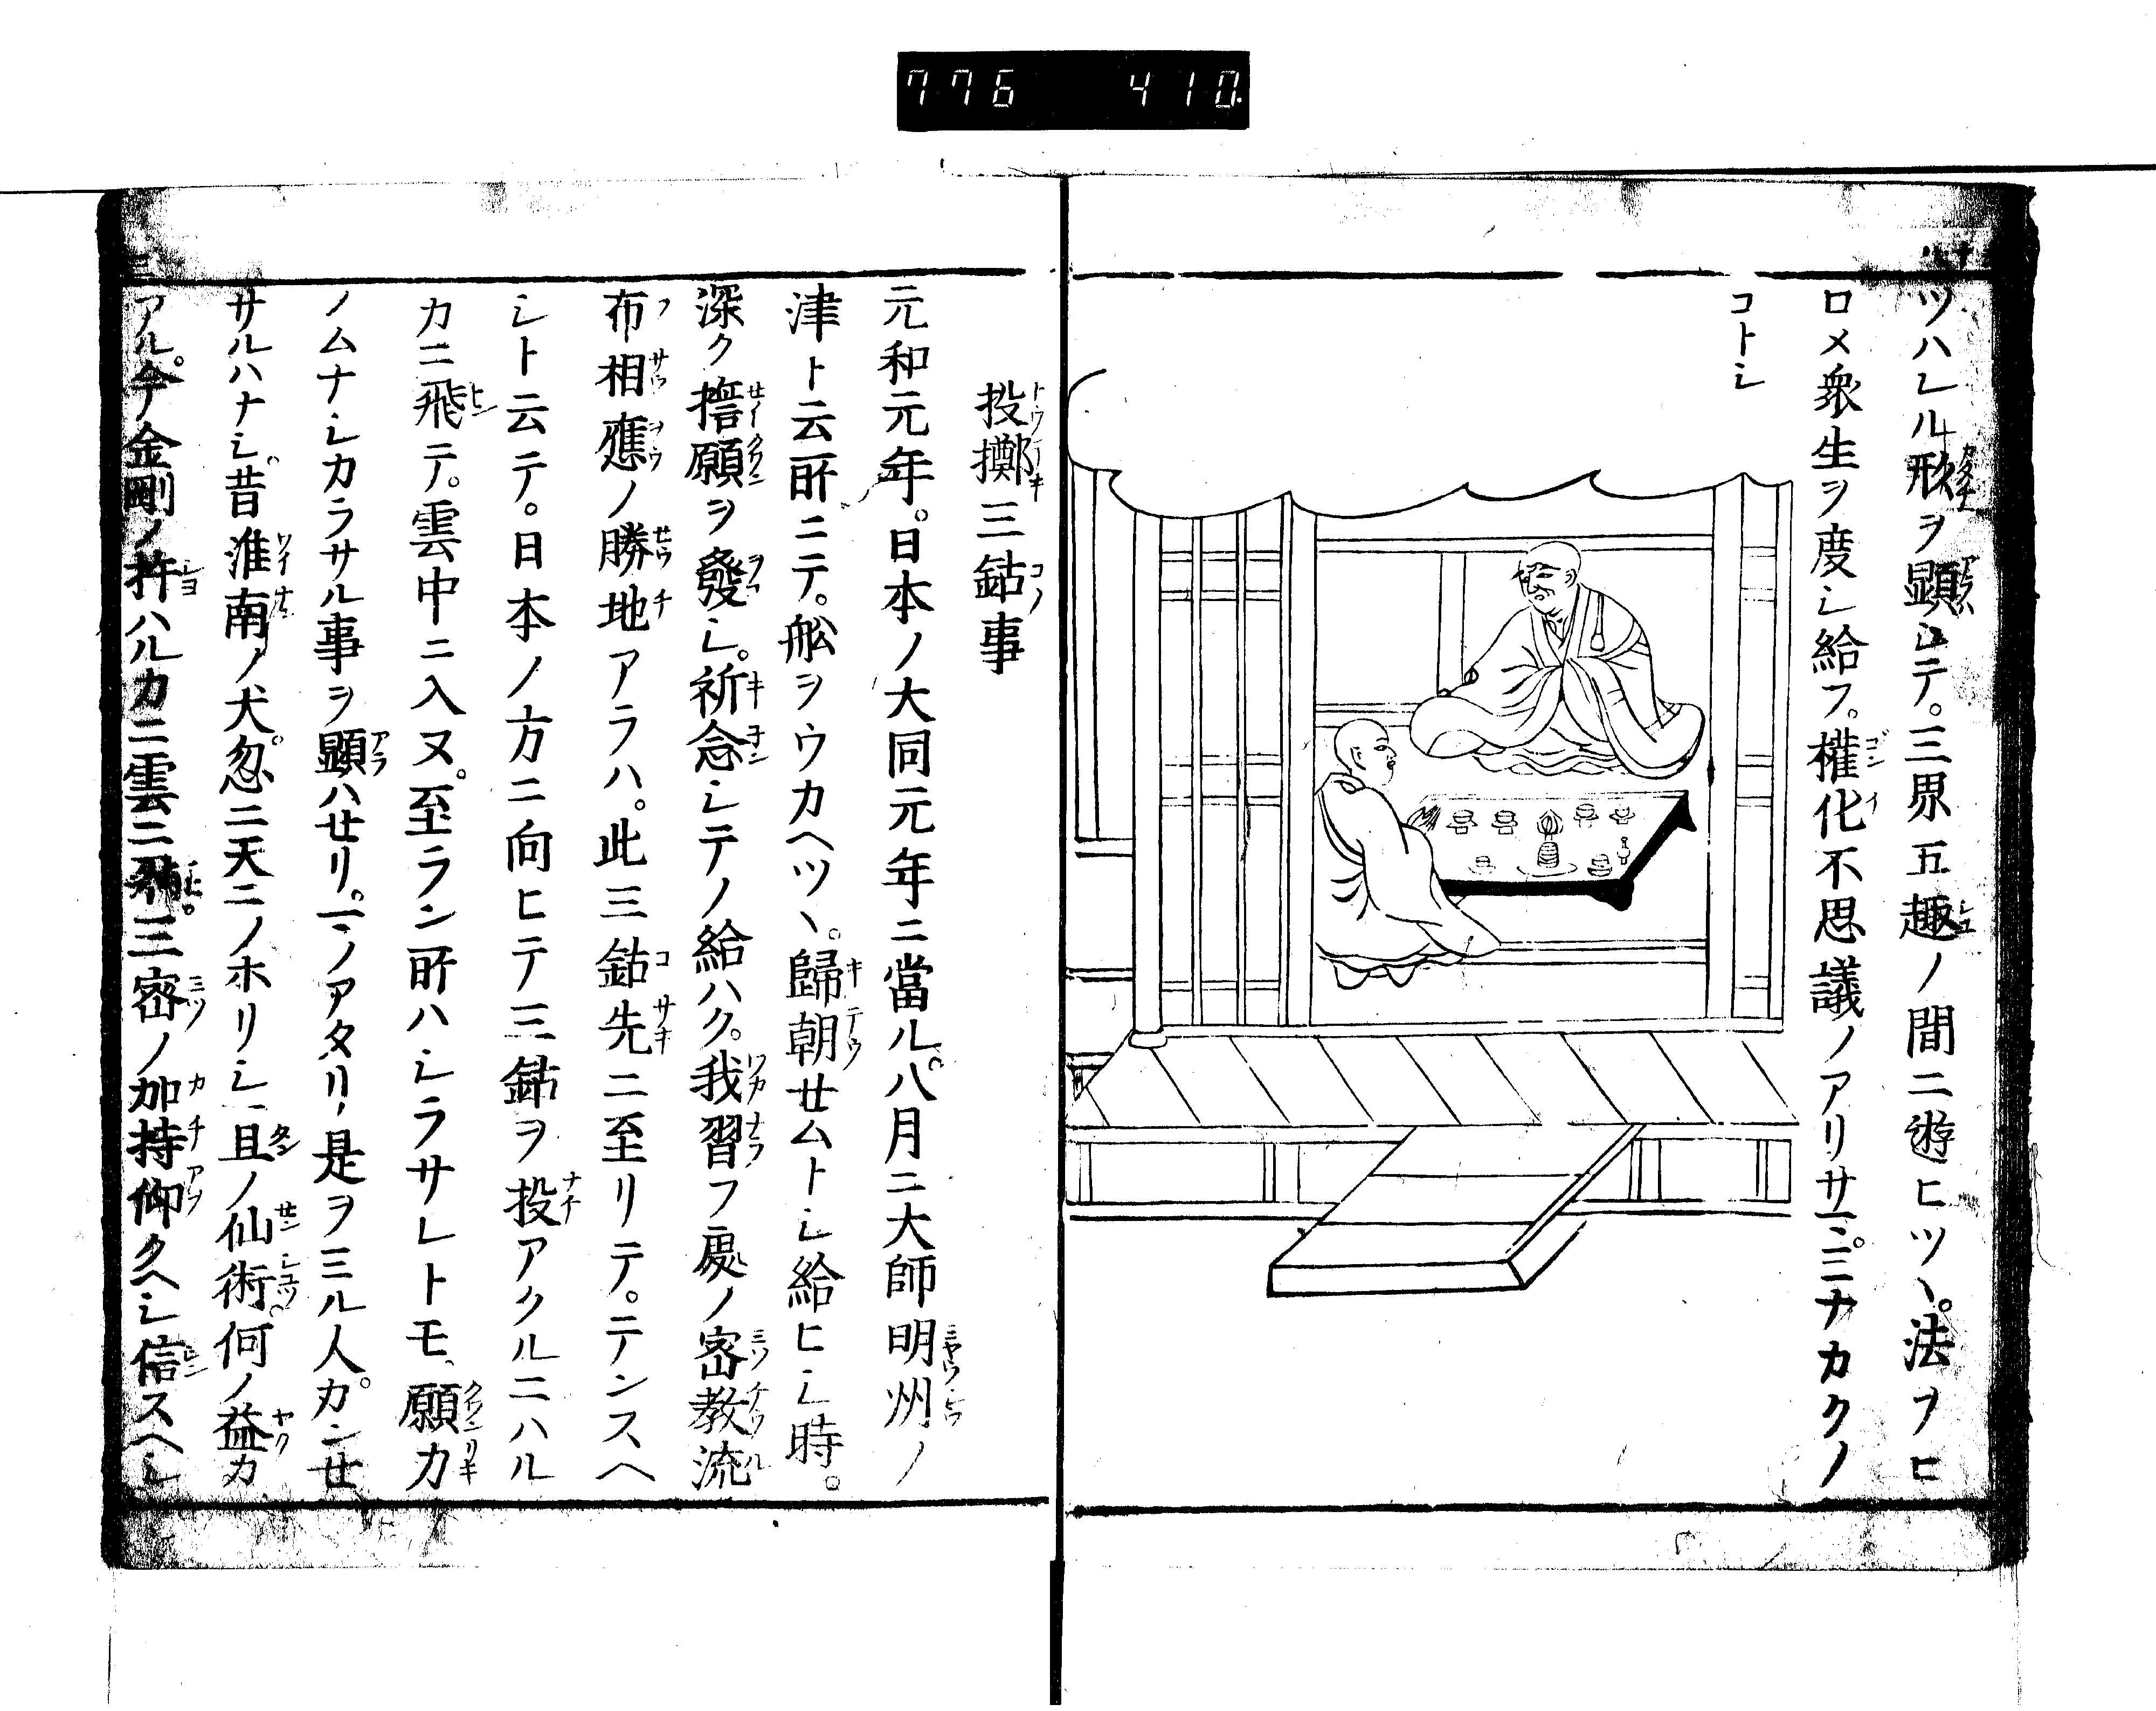 776 410
ツハレル形ヲ顕シテ。三界五趣ノ間ニ遊ヒツヽ。法ヲヒ
ロメ衆生ヲ度シ給フ。權化不思議ノアリサマ。ミナカクノ
コトシ
投擲三鈷事
元和元年。日本ノ大同元年ニ當ル。八月ニ大師明州ノ
津ト云所ニテ。舩ヲウカヘツヽ。歸朝せムトシ給ヒシ時。
深ク誓願ヲ發シ。祈念シテノ給ハク。我習フ處ノ密教流
布相應ノ勝地アラハ。此三鈷先ニ至リテ。テンスヘ
シト云テ。日本ノ方ニ向ヒテ三鈷ヲ投アクルニハル
カニ飛テ。雲中ニ入ヌ。至ラン所ハシラサレトモ、願力
ノムナシカラサル事ヲ顕ハせリ。マノアタリ是ヲミル人。カンせ
サルハナシ。昔淮南ノ犬。忽ニ天ニノホリシ一旦ノ仙術。何ノ益カ
アル。今ノ金剛ノ杵ハルカニ雲ニ飛。三密ノ加持仰クヘシ信スヘシ